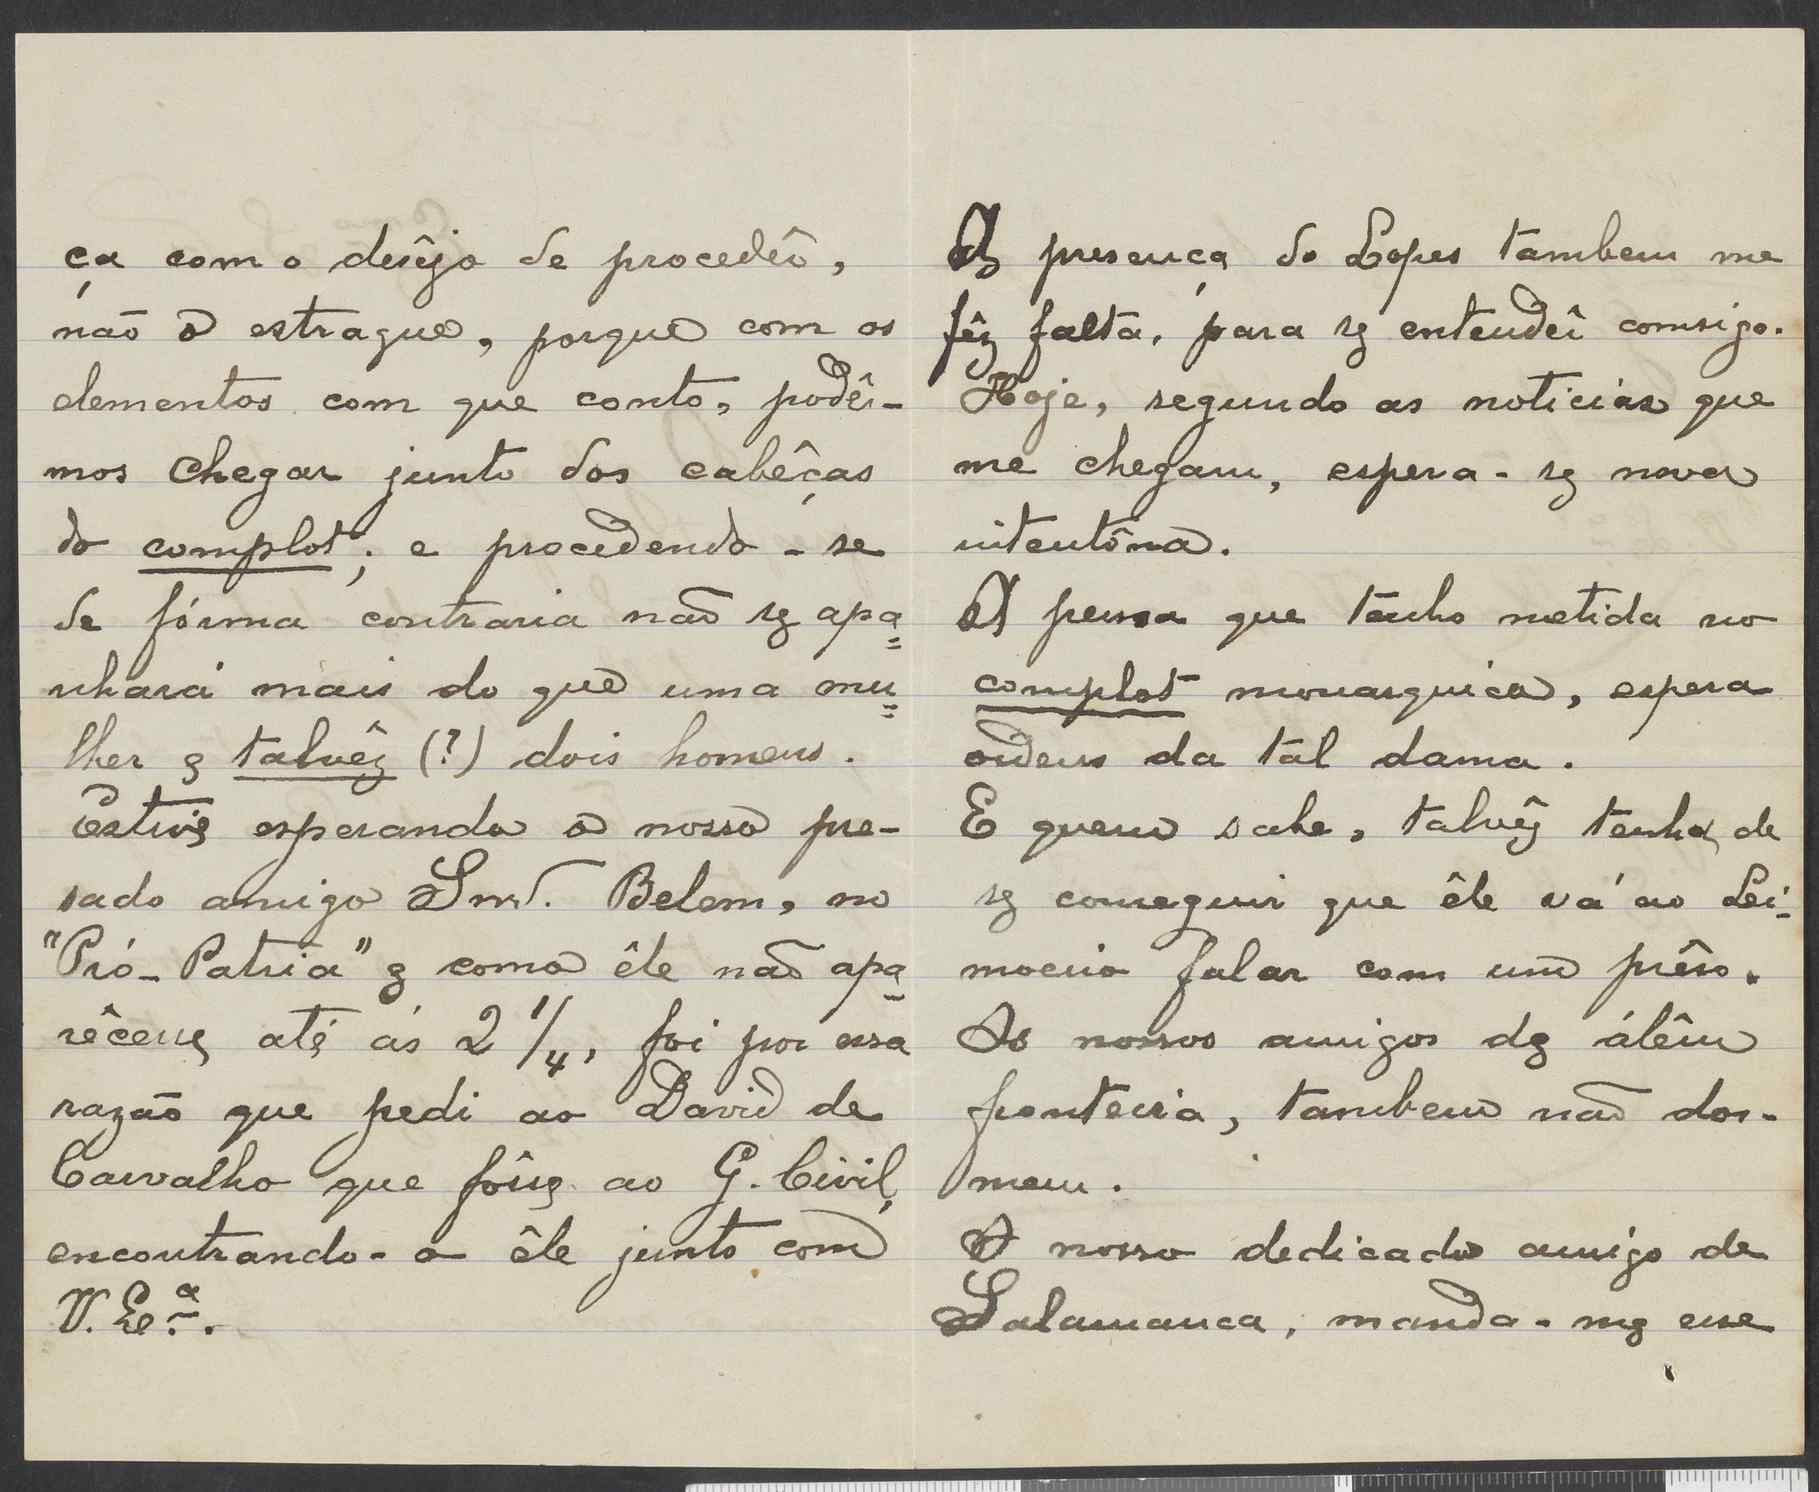 ça com o desêjo de procedêr,
não o estrague, porque com os
elementos com que conto, podêr-
mos chegar junto dos cabêças
do complot; e procedendo-se
de fórma contraria não se apa=
nhará mais do que uma mu=
lher e talvêz (?) dois homens.
Estive esperando o nosso pre-
sado amigo Snr. Belem, no
"Pró-Patria" e como êle não apa=
rêcesse até ás 2 1/4, foi por essa
razão que pedi ao David de
Carvalho que fôsse ao G. Civil,
encontrando-o êle junto com
V. Eª.
A presença do Lopes tambem me
fêz falta, para se entendêr comsigo.
Hoje, segundo as noticias que
me chegam, espera-se nova
intentôna.
A pessoa que tenho metida no
complot monarquico, espera
ordens da tal dama.
E quem sabe, talvêz tenha de
se conseguir que êle vá ao Lei-
moeiro falar com um prêso.
Os nossos amigos de álêm
fronteira, tambem não dor-
mem.
O nosso dedicado amigo de
Salamanca, manda-me esse